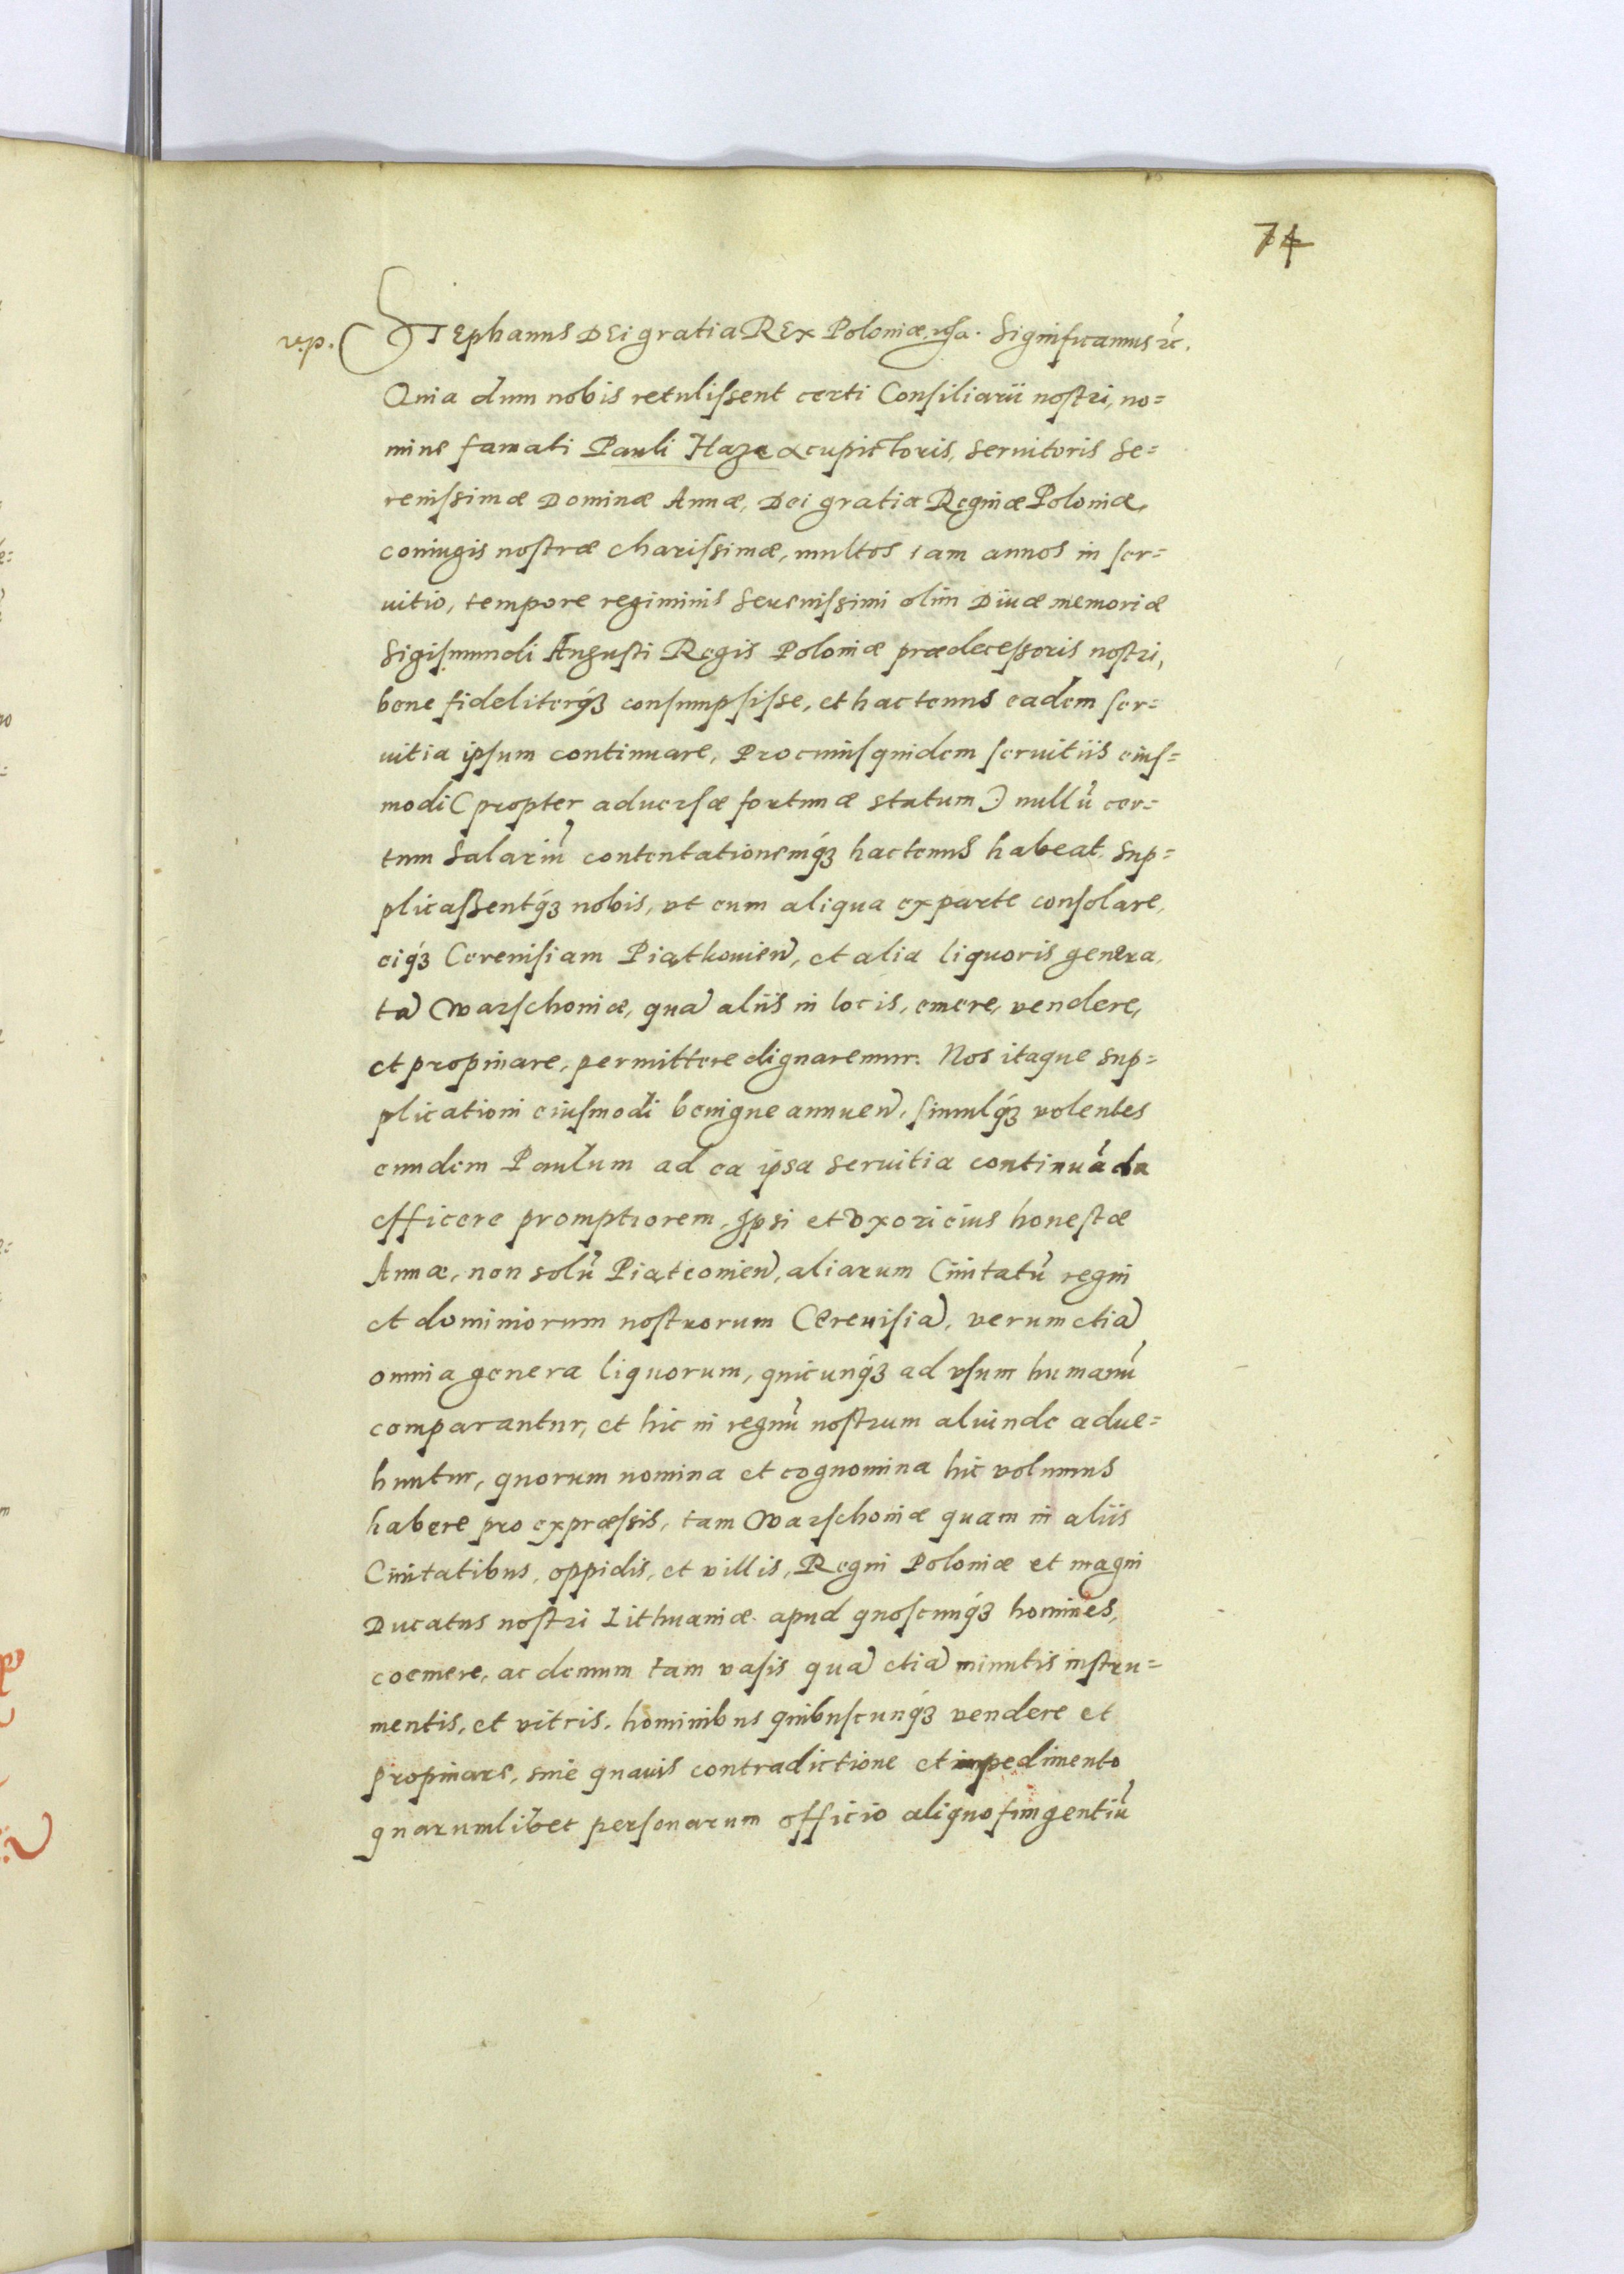 74
v.p. Stephanus Dei gratia Rex Poloniæ. Significamus ꝛc.
Quia dum nobis retulißent certi Consiliarii nostri, no=
mine famati Pauli Haze acupictoris, seruitoris Se=
renißimæ Dominæ Annæ, Dei gratia Reginæ Poloniæ,
coniugis nostræ charißimæ, multos iam annos in ser=
uitio, tempore regiminis Serenißimi olim Diuæ memoriæ
Sigismundi Augusti Regis Poloniæ prædeceßoris nostri,
bene fideliterq́ꝫ consumpsiße, et hactenus eadem ser=
uitia ipsum continuare, Pro cuiusquidem seruitiis eius=
modi (propter aduersæ fortunæ statum) nullũ cer=
tum Salariũ contentationemq́ꝫ hactenus habeat. Sup=
plicaßentq́ꝫ nobis, vt eum aliqua ex parte consolare,
eiq́ꝫ Cereuisiam Piątkouien̄, et alia liquoris genera,
tã Warschouiæ, quã aliis in locis, emere, vendere,
et propinare, permittere dignaremur. Nos itaque sup=
plicationi eiusmodi benigne annuen̄, simulq́ꝫ volentes
eundem Paulum ad ea ipsa seruitia continuãda
efficere promptiorem, Ipsi et vxori eius honestæ
Annæ, non solũ Piątcouien̄, aliarum Ciuitatũ regni
et dominiorum nostrorum Cereuisiã, verum etiã
omnia genera liquorum, quicunq́ꝫ ad vsum humanũ
comparantur, et hic in regnũ nostrum aliunde adue=
huntur, quorum nomina et cognomina hic volumus
habere pro expræßis, tam Warschouiæ quam in aliis
Ciuitatibus, oppidis, et villis, Regni Poloniæ et magni
Ducatus nostri Lithuaniæ apud quoscunq́ꝫ homines,
coemere, ac demum tam vasis quã etiã minutis instru=
mentis, et vitris, hominibus quibuscunq́ꝫ vendere et
propinare, sine quauis contradictione et impedimento
quarumlibet personarum officio aliquo fungentiũ